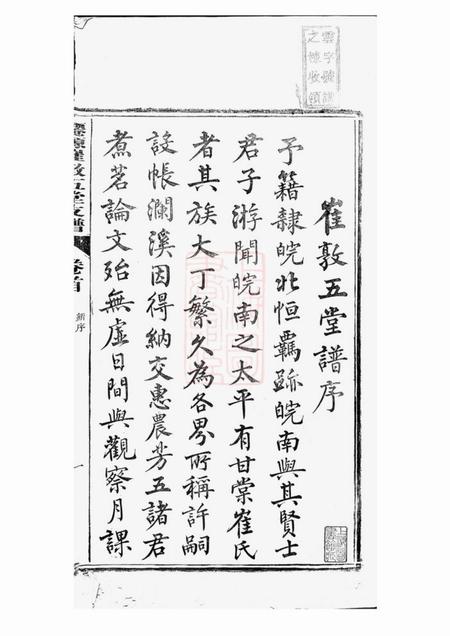 崔敦五堂譜序
予籍隸皖北恒羈跡皖南與其賢士
君子游聞皖南之太平有甘棠崔氏
者其族大丁繁久為各界所稱許嗣
設帳瀾溪因得納交惠農芳五諸君
煮茗論文殆無虛日間與觀察月課
新序
一